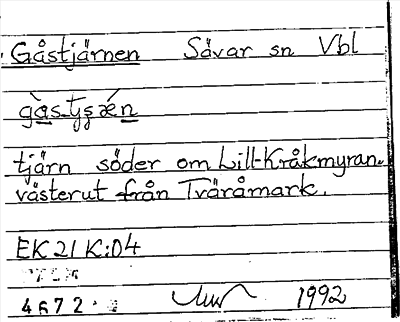 Gåstjärnen Sävar sn Vbl
tjärn söder om Lill-Kråkmyran.
västerut från Tväråmark.
EK 21 K:04
4672
1992